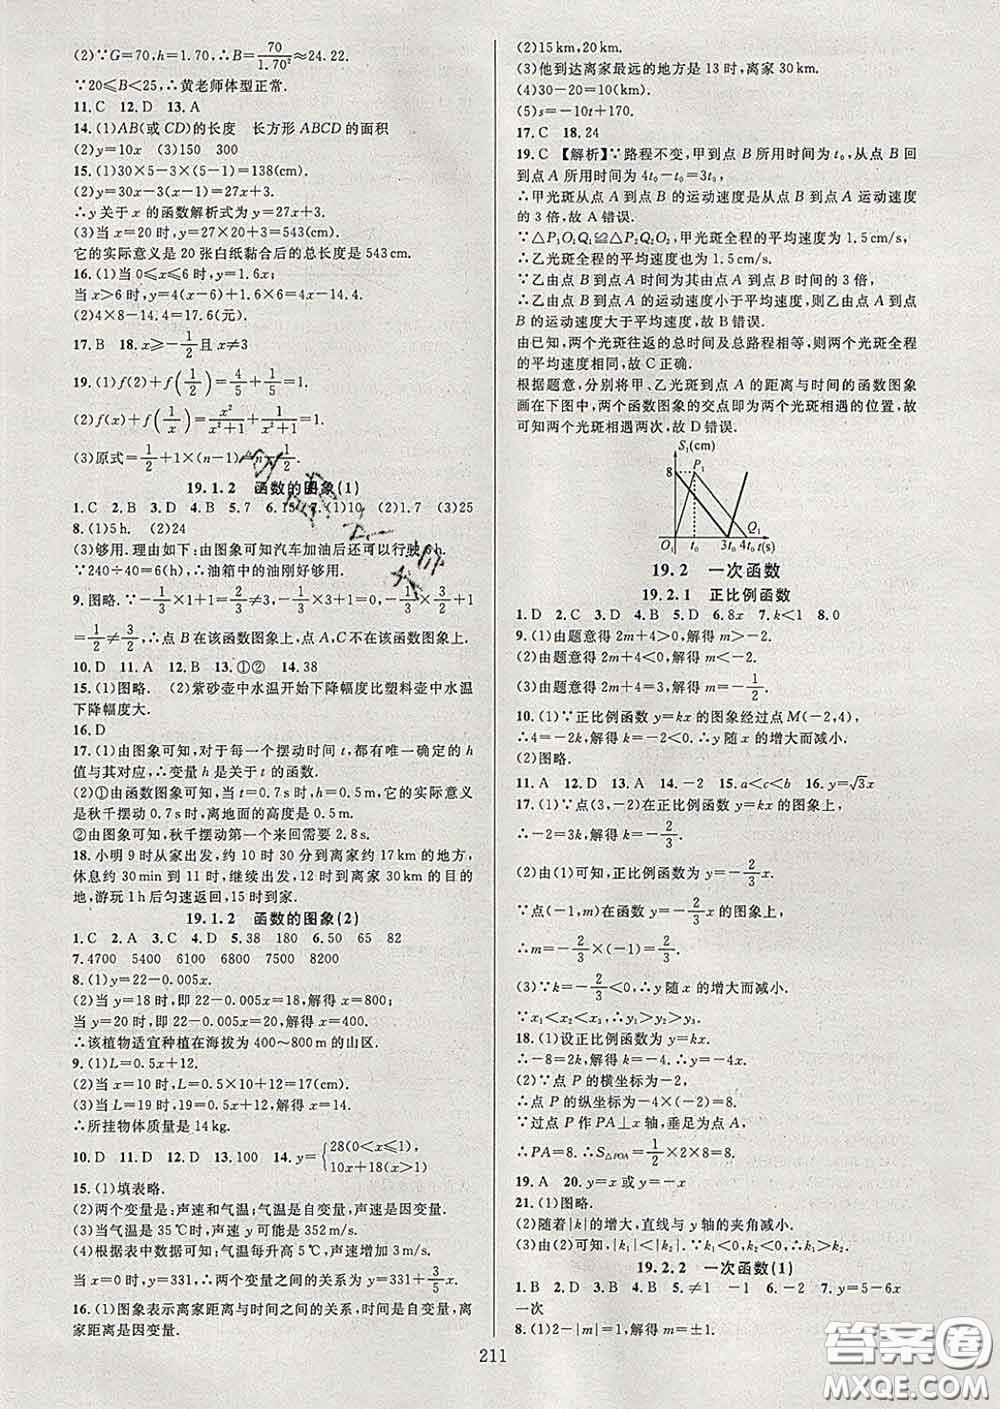 (2)∵G=70,h=1.70,∴B=70/1.70²≈24.22.
∵20≤B<25,∴黄老师体型正常.
11.C 12.D 13.A
14.(1)AB(或CD)的长度 长方形ABCD的面积
(2)y=10x (3)150 300
15.(1)30×5-3×(5-1)=138(cm).
(2)y=30x-3(x-1)=27x+3.
∴y关于x的函数解析式为y=27x+3.
(3)当x=20时,y=27×20+3=543(cm).
它的实际意义是20张白纸黏合后的总长度是543cm.
16.(1)当0≤x≤6时,y=1.6x;
当x>6时,y=4(x-6)+1.6×6=4x-14.4.
(2)4×8-14.4=17.6(元).
17.B 18.x≥-1/2且x≠3
19.(1)f(2)+f(1/2)=4/5+1/5=1.
(2)f(x)+f(1/x)=x²/(x²+1)+1/(x²+1)=1.
(3)原式=1/2+1×(n-1)=n-1/2.
19.1.2 函数的图象(1)
1.C 2.B 3.D 4.B 5.7 6.15 7.(1)10 (2)1.7 (3)25
8.(1)5h. (2)24
(3)够用.理由如下:由图象可知汽车加油后还可以行驶6h.
∵240÷40=6(h),∴油箱中的油刚好够用.
9.图略.∵-1/3×1+1=2/3≠3,-1/3×(-1)+1=4/3,-1/3×3/2+1
=1/2≠3/2,∴点B在该函数图象上,点A,C不在该函数图象上.
10.D 11.A 12.B 13.①② 14.38
15.(1)图略. (2)紫砂壶中水温开始下降幅度比塑料壶中水温
下降幅度大.
16.D
17.(1)由图象可知,对于每一个摆动时间t,都有唯一确定的h
值与其对应,∴变量h是关于t的函数.
(2)①由函数图象可知,当t=0.7s时,h=0.5m,它的实际意义
是秋千摆动0.7s时,离地面的高度是0.5m.
②由图象可知,秋千摆动第一个来回需要2.8s.
18.小明9时从家出发,约10时30分到离家约17km的地方,
休息约30min到11时,继续出发,12时到离家30km的目的
地,游玩1h后匀速返回,15时到家.
19.1.2 函数的图象(2)
1.C 2.A 3.C 4.D 5.38 180 6.50 65 82
7.4700 5400 6100 6800 7500 8200
8.(1)y=22-0.005x.
(2)当y=18时,即22-0.005x=18,解得x=800;
当y=20时,即22-0.005x=20,解得x=400.
∴该植物适宜种植在海拔为400~800m的山区.
9.(1)L=0.5x+12.
(2)当x=10时,L=0.5×10+12=17(cm).
(3)当L=19时,19=0.5x+12,解得x=14.
∴所挂物体质量是14kg.
10.D 11.D 12.D 13.100 14.y={28(0<x≤1), 10x+18(x>1)
15.(1)填表略.
(2)两个变量是:声速和气温;气温是自变量,声速是因变量.
(3)当气温是35℃时,声速y可能是352m/s.
(4)根据表中数据可知:气温每升高5℃,声速增加3m/s.
当x=0时,y=331,∴两个变量之间的关系式是y=331+3/5x
16.(1)图象表示离家距离与时间之间的关系,时间是自变量,离
家距离是因变量.
(2)15km,20km.
(3)他到达离家最远的地方是13时,离家30km.
(4)30-20=10(km).
(5)s=-10t+170.
17.C 18.24
19.C 【解析】∵路程不变,甲到点B所用时间为t₀,从点B回
到点A所用时间为4t₀-t₀=3t₀,
∴甲光斑从点A到点B的运动速度是从点B到点A运动速度
的3倍,故A错误.
∵△P₁O₁Q₁≌△P₂Q₂O₂,甲光斑全程的平均速度为1.5cm/s,
∴乙光斑全程的平均速度也为1.5cm/s.
∴乙由点B到点A时间为其由点A到点B时间的3倍,
∴乙由点B到点A的运动速度小于平均速度,则乙由点A到点
B的运动速度大于平均速度,故B错误.
由已知,两个光斑往返的总时间及总路程相等,则两个光斑全程
的平均速度相同,故C正确.
根据题意,分别将甲、乙光斑到点A的距离与时间的函数图象
画在下图中,两个函数图象的交点即为两个光斑相遇的位置,故
可知两个光斑相遇两次,故D错误.
S₁(cm)
8 P₁
Q₁
O₁ t₀ 3t₀ 4t₀ t(s)
19.2 一次函数
19.2.1 正比例函数
1.D 2.C 3.D 4.B 5.D 6.8x 7.k<1 8.0
9.(1)由题意得2m+4>0,解得m>-2.
(2)由题意得2m+4<0,解得m<-2.
(3)由题意得2m+4=3,解得m=-1/2.
10.(1)∵正比例函数y=kx的图象经过点M(-2,4),
∴4=-2k,解得k=-2.∴y随x的增大而减小.
(2)图略.
11.A 12.D 13.D 14.-2 15.a<c<b 16.y=√3x
17.(1)∵点(3,-2)在正比例函数y=kx的图象上,
∴-2=3k,解得k=-2/3.
(2)由(1)可知,正比例函数y=-2/3x.
∵点(-1,m)在函数y=-2/3x的图象上,
∴m=-2/3×(-1)=2/3.
(3)∵k=-2/3<0,∴y随x的增大而减小.
∵x₁<x₂<x₃,∴y₁>y₂>y₃.
18.(1)设正比例函数为y=kx.
∴-8=2k,解得k=-4.∴y=-4x.
(2)∵点P的横坐标为-2.
∴点P的纵坐标为-4×(-2)=8.
∵过点P作PA⊥x轴,垂足为点A,
∴PA=8.∴S△POA=1/2×2×8=8.
19.A 20.y=x或y=-x
21.(1)图略.
(2)随着|k|的增大,直线与y轴的夹角减小.
(3)由(2)可知,|k₁|<|k₂|.∵k₁<0,k₂<0,∴k₁>k₂.
19.2.2 一次函数(1)
1.B 2.D 3.C 4.B 5.≠1 -1 6.-2 7.y=4x-8
一次
8.(1)2-|m|=1,解得m=±1.
211
答案圈
MXQE.COM